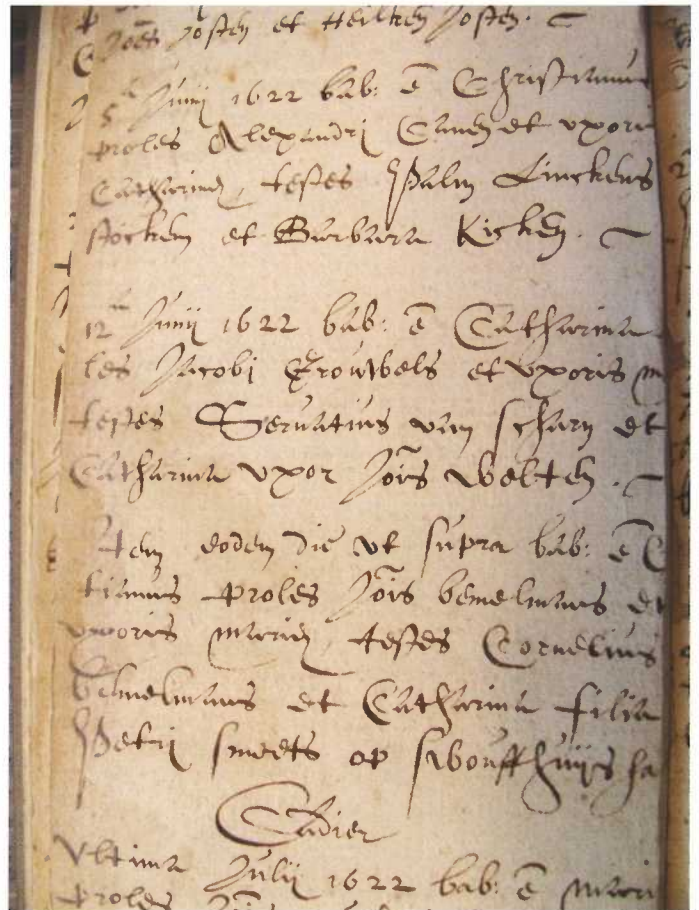 Joēs Josten et Heilken Josten.
5 Junij 1622 bab: ē Christianus
proles Alexandri Canen et uxoris
Catharinæ, testes Palm Linckens
stocken et Barbara Kicken.
12 Junij 1622 bab: ē Catharina
les Jacobi Grouwels et uxoris m
testes Servatius van scharn et
Catharina uxor Jōis Welten.
Item eodem die ut supra bab: ē C
tianus proles Jōis bemelmans et
uxoris mariæ, testes Cornelius
bemelmans et Catharina filia
Petri smeets op
Cadier
Ultima Julij 1622 bab: ē Mari
proles